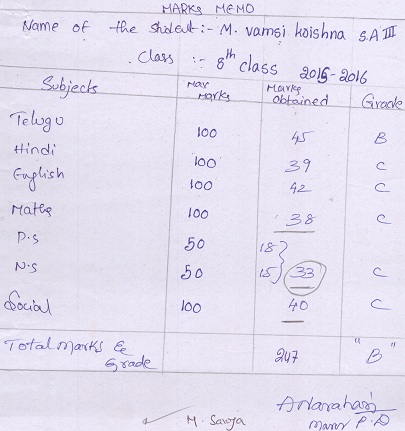 MARKS MEMO
Name of the Student:- M. vamsi koishna S.A III
Class :- 8th class 2015-2016
Subjects Max Marks Marks Obtained Grade
Telugu 100 45 B
Hindi 100 39 C
English 100 42 C
Maths 100 38 C
P.S 50 18
N.S 50 15 33 C
Social 100 40 C
Total marks & Grade 247 "B"
M.